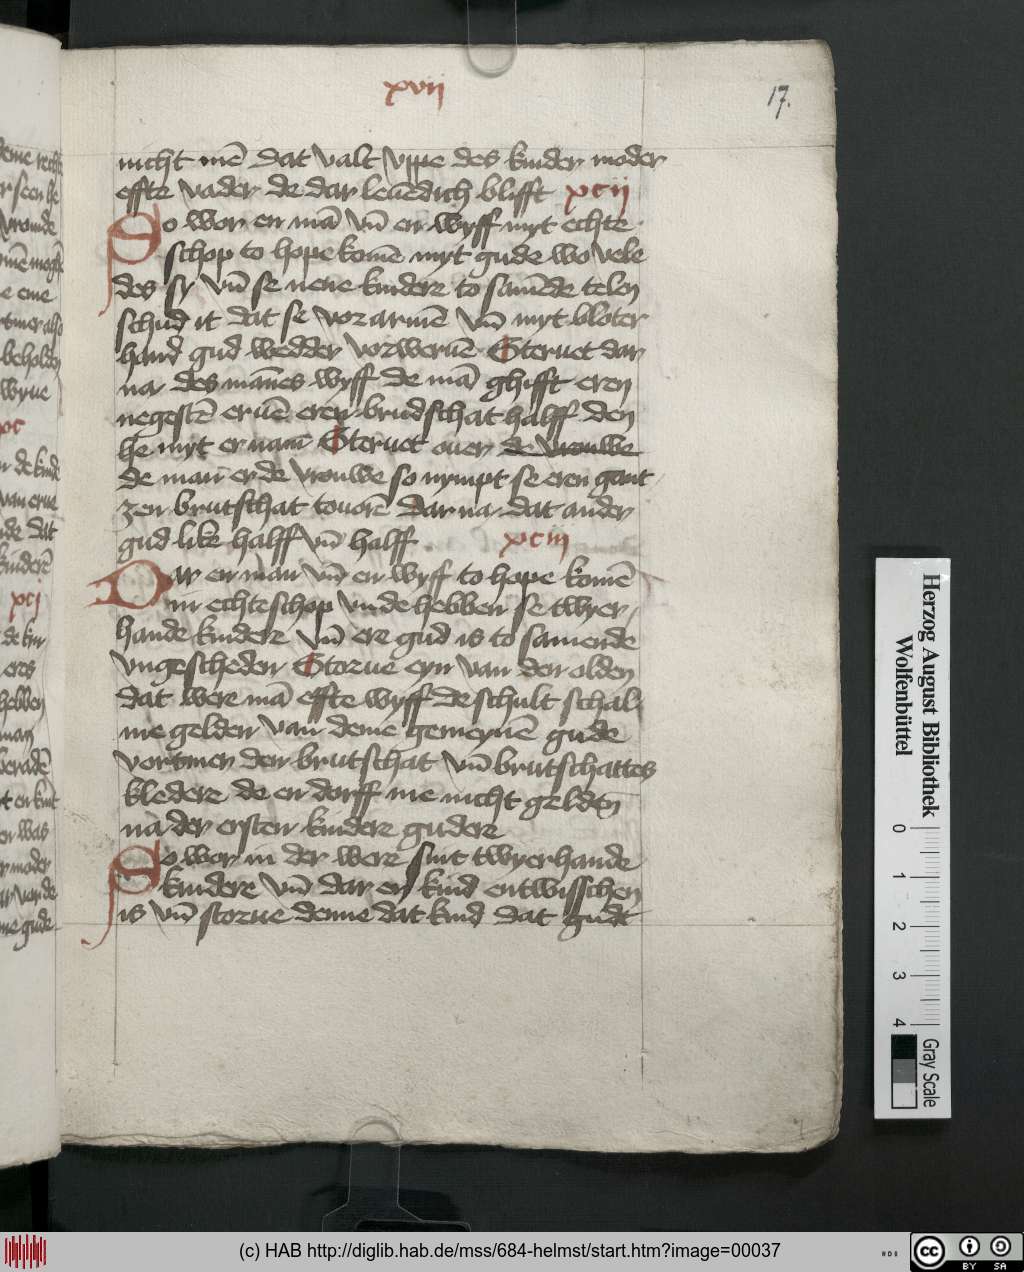 xvii
17.
nicht mē dat valt vppe des kinder moder
effte vader de dar leuēdich blifft xcij
So wor en mā vn̄ en wyff myt echte
schop to hope komē myt gude wo vele
des sy vn̄ se nene kindere to samēde telen
schud it dat se vorarmē vn̄ myt bloter
hand gud wedder vorweruē Steruet dar
na des mānes wyff de mā ghifft eren
negestē eruē eren brudschat halff den
he myt er nam Steruet ouer de vrouwe
de man er de vrouwe so nympt se eren gant
zen brutschat touorē Dar na dat ander
gud like halff vn̄ halff . xciii
Dar en man vn̄ en wyff to hope komē
in echteschop vnde hebben se twyer
hande kindere vn̄ ere gud is to samende
vngescheden Storue eyn van den olden
dat were mā effte wyff de schult schal
me gelden van deme gemeynē gude
vortmer den brutschat vn̄ brutschattes
kledere de en dorff me nicht gelden
na der ersten kindere gudere
So wor in der were sint twyerhande
kindere vn̄ dar en kind entwisschen
is vn̄ storue denne dat kind dat gudt
Herzog August Bibliothek
Wolfenbüttel
0 1 2 3 4
Gray Scale
(c) HAB http://diglib.hab.de/mss/684-helmst/start.htm?image=00037
cc BY SA